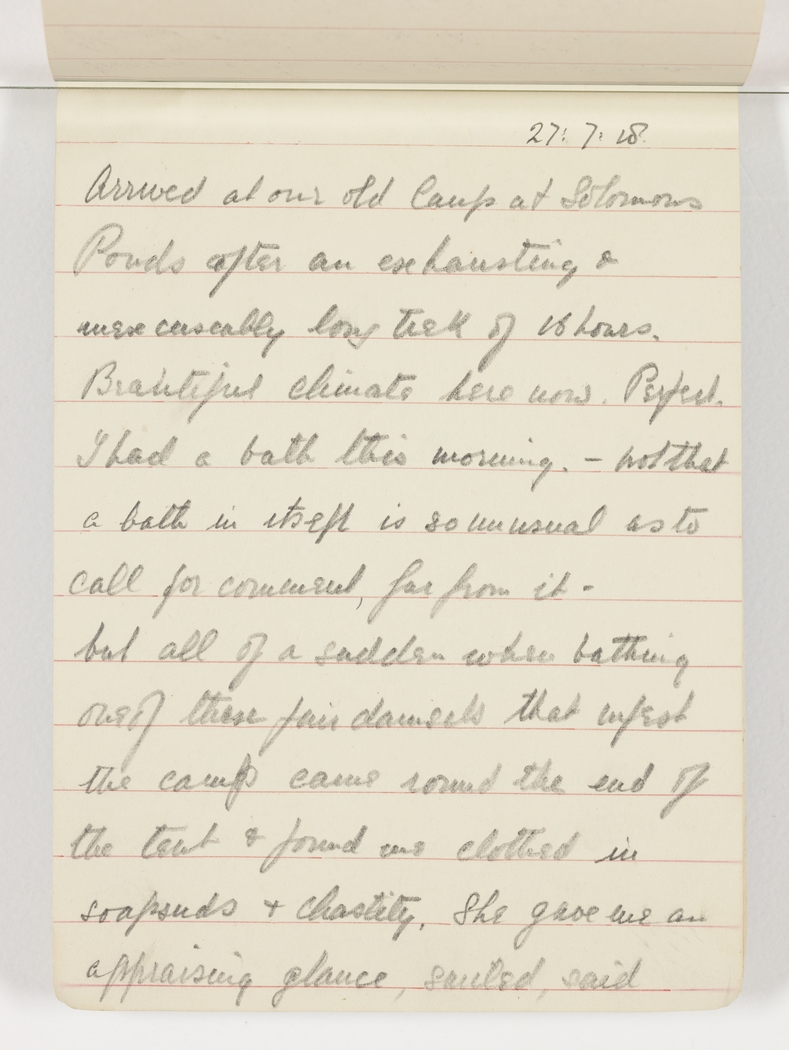 27: 7: 18.
Arrived at our old Camp at Solomons
Ponds after an exhausting &
inexcuseably long trek of 16 hours.
Beautiful climate here now. Perfect.
I had a bath this morning. - not that
a bath in itself is so unusual as to
call for comment, far from it -
but all of a sudden when bathing
one of these fair damsels that infest
the camp came round the end of
the tent & found me clothed in
soapsuds + chastity. She gave me an
appraising glance, smiled, said